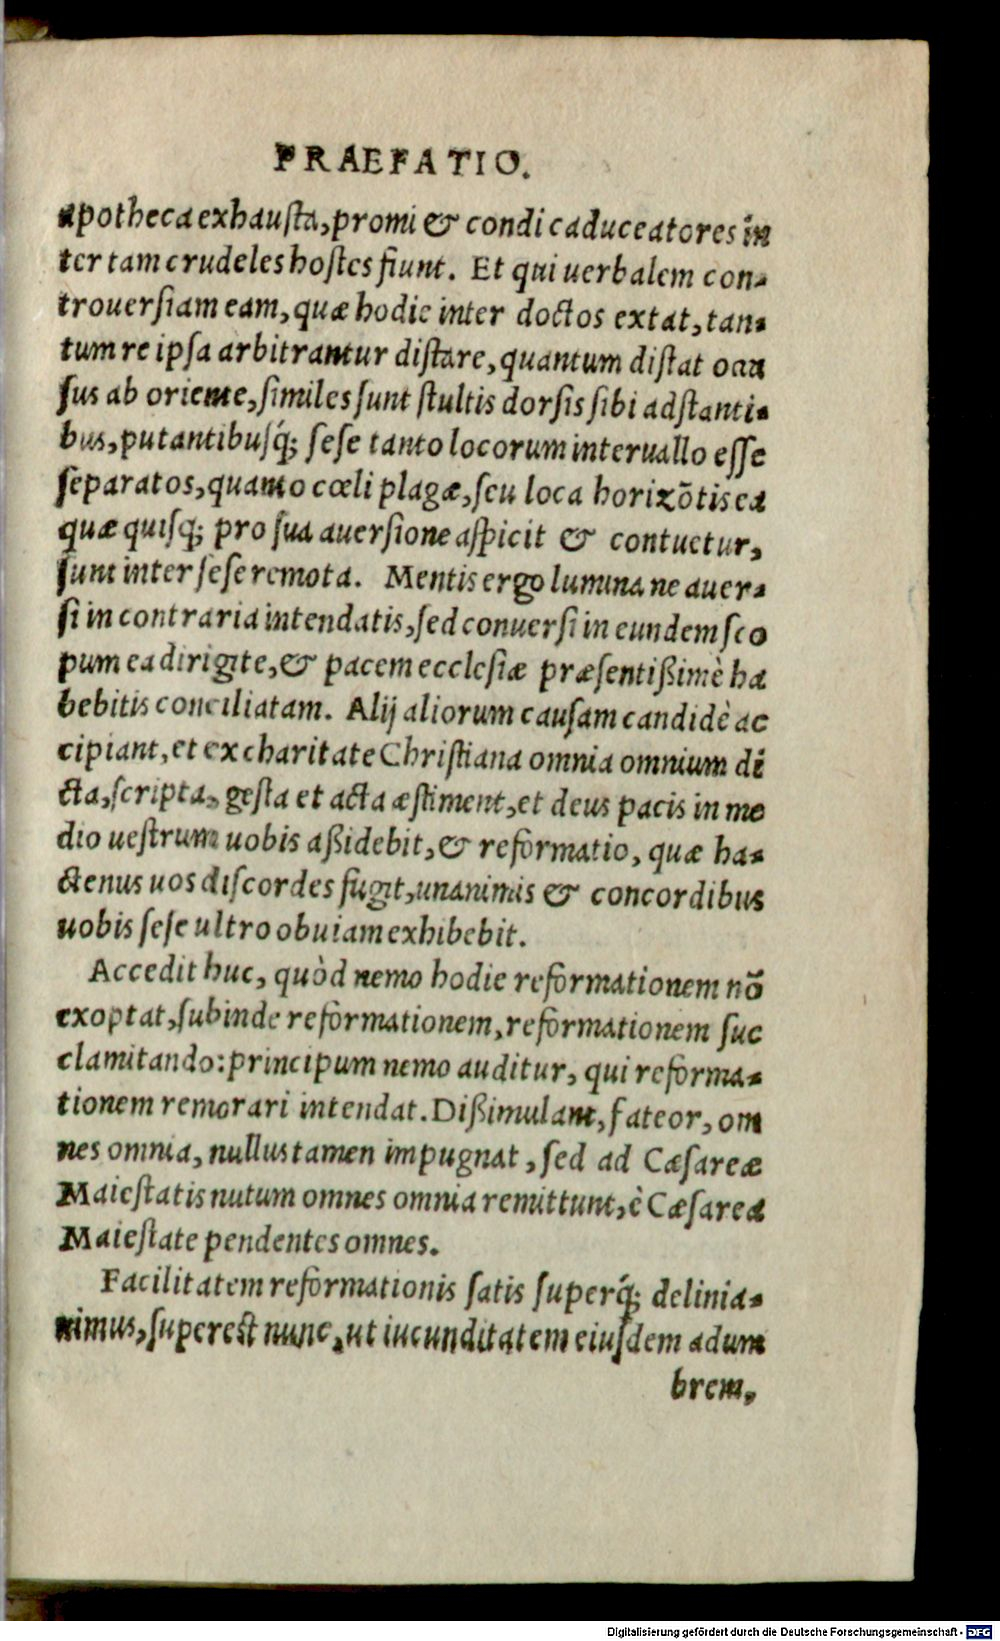 PRAEFATIO.
apotheca exhausta, promi & condi caduceatores in
ter tam crudeles hostes fiunt. Et qui uerbalem con-
trouersiam eam, quæ hodie inter doctos extat, tan-
tum re ipsa arbitrantur distare, quantum distat occa
sus ab oriente, similes sunt stultis dorsis sibi adstanti-
bus, putantibusq́; sese tanto locorum interuallo esse
separatos, quanto cœli plagæ, seu loca horizõtis ea
quæ quisq; pro sua auersione aspicit & contuetur,
sunt inter sese remota. Mentis ergo lumina ne auer-
si in contraria intendatis, sed conuersi in eundem sco
pum ea dirigite, & pacem ecclesiæ præsentißimè ha
bebitis conciliatam. Alij aliorum causam candidè ac
cipiant, et ex charitate Christiana omnia omnium di
cta, scripta, gesta et acta æstiment, et deus pacis in me
dio uestrum uobis aßidebit, & reformatio, quæ ha-
ctenus uos discordes fugit, unanimis & concordibus
uobis sese ultro obuiam exhibebit.
Accedit huc, quòd nemo hodie reformationem nõ
exoptat, subinde reformationem, reformationem suc
clamitando: principum nemo auditur, qui reforma-
tionem remorari intendat. Dißimulant, fateor, om
nes omnia, nullus tamen impugnat, sed ad Cæsareæ
Maiestatis nutum omnes omnia remittunt, è Cæsarea
Maiestate pendentes omnes.
Facilitatem reformationis satis superq́; delinia-
uimus, superest nunc, ut iucunditatem eiusdem adum
brem,
Digitalisierung gefördert durch die Deutsche Forschungsgemeinschaft - DFG